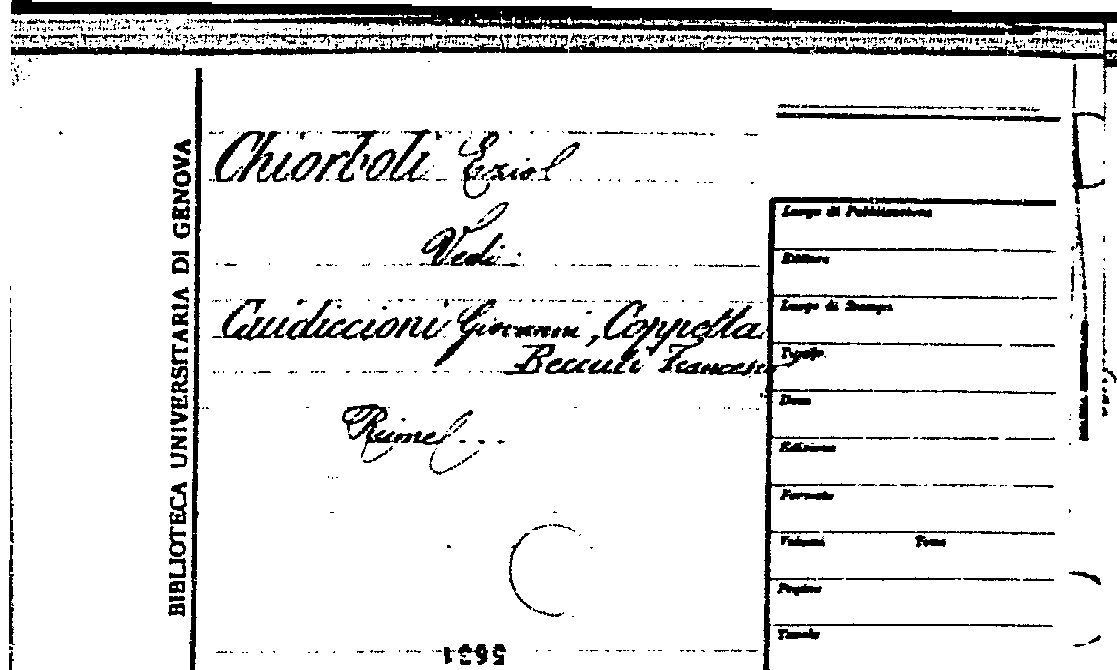 BIBLIOTECA UNIVERSITARIA DI GENOVA
Chiorboli Ezio
Vedi:
Guidiccioni Giovanni, Coppetta
Beccuti Francesco
Rime...
Luogo di Pubblicazione
Editore
Luogo di Stampa
Tipogr.
Data
Edizione
Formato
Volumi Tomo
Pagine
Tavole
5631